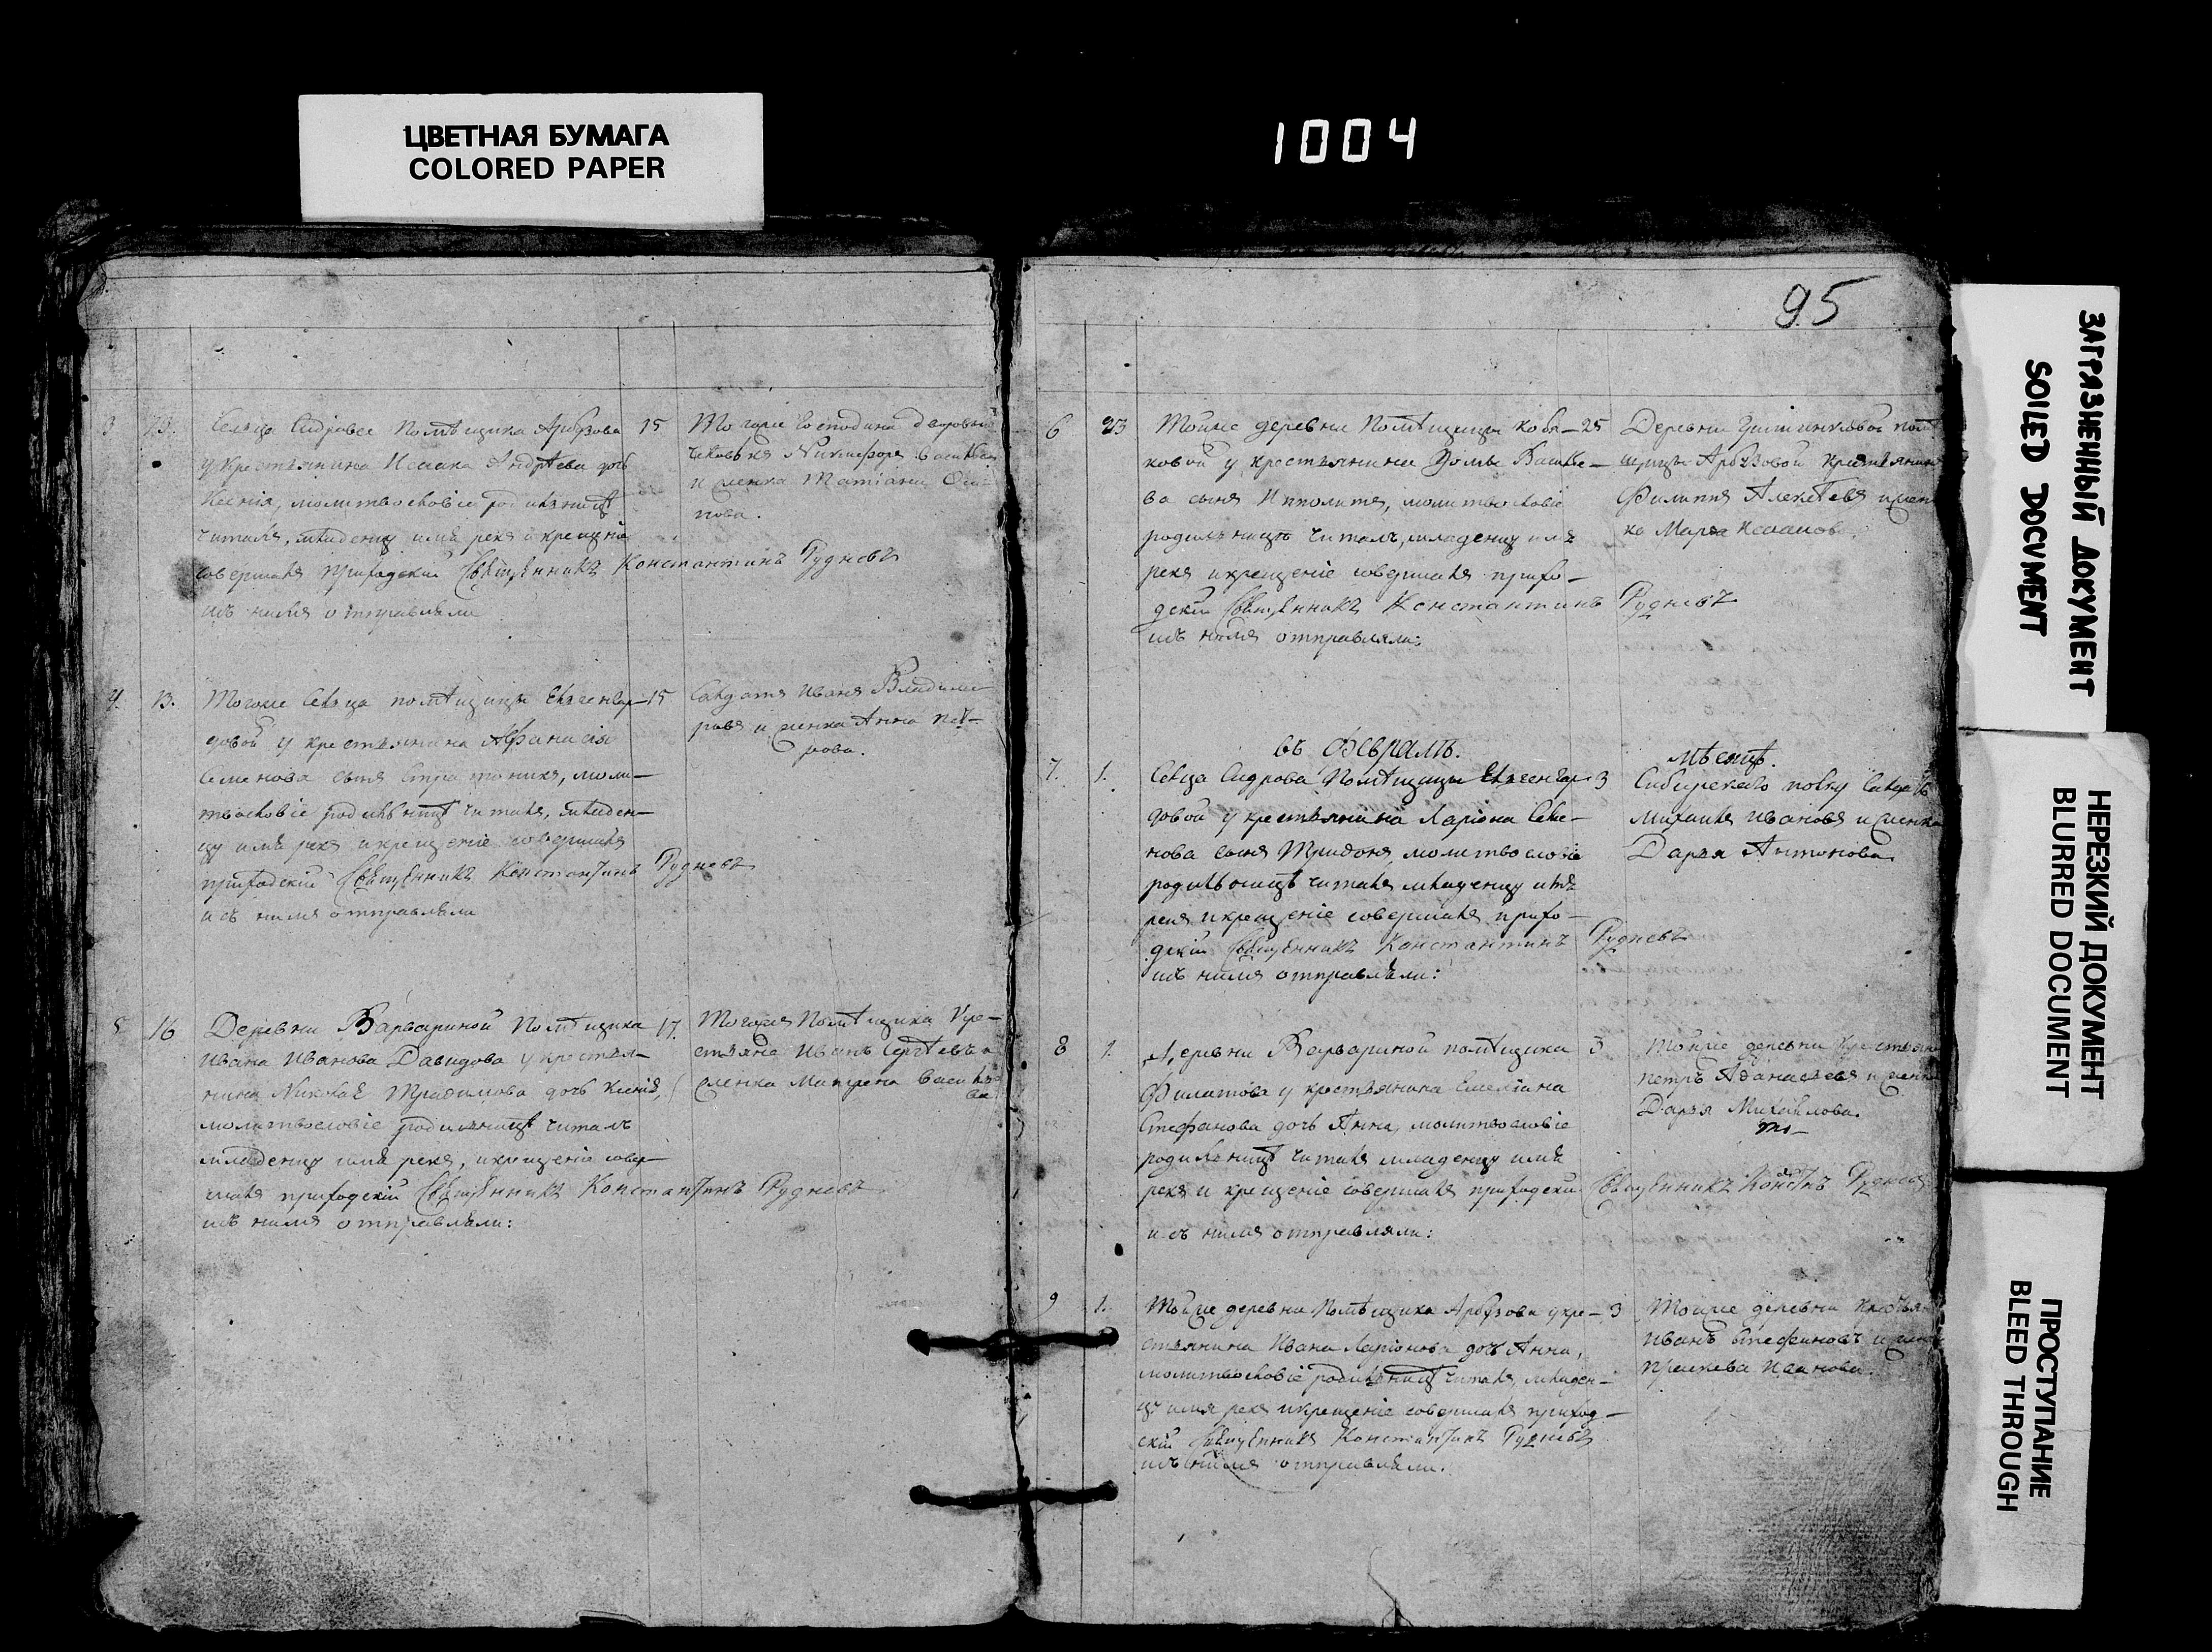 ЦВЕТНАЯ БУМАГА
COLORED PAPER
1004
95
3 13. Сельца Сидровее Помѣщика Арбузова 15
у крестьянина Исаака Андрѣева дочь
Ксенія, молитвословіе родильницѣ
читалъ, младенцу имя рекъ и крещеніе
совершалъ приходскій Священникъ Константинъ Рудневъ
исъ нимъ отправляли
Тогоже Господина дворовый
человѣкъ Никифоръ Васильевъ
и женка Татіана Оси-
пова.
4. 13. Тогоже сельца помѣщицы 15
довой у крестьянина Афанасія
Семенова сынъ Стратоникъ, моли-
твословіе родильницѣ читалъ, младен-
цу имя рекъ и крещеніе совершалъ
приходскій Священникъ Константинъ Рудневъ
и съ нимъ отправляли
Солдатъ Иванъ Владими
ровъ и женка Анна Пет-
рова.
5 16 Деревни Варвариной Помѣщика 17.
Ивана Иванова Давидова у крестья-
нина Николая Традимова дочь Ксенія,
молитвословіе родильницѣ читалъ
младенцу имя рекъ, и крещеніе совер-
шалъ приходскій Священникъ Константинъ Рудневъ
исъ нимъ отправляли:
Тогожъ Помѣщика Кре-
стьяне Иванъ Сергѣевъ и
женка Матрена Василье
ва
6 23 Тойже деревни Помѣщицы Кобя- 25
ковой у крестьянина Фомы Василье-
ва сынъ Ипполитъ, молитвословіе
родильницѣ читалъ, младенцу имя
рекъ и крещеніе совершалъ прихо-
дскій Священникъ Константинъ Рудневъ
исъ нимъ отправляли:
Деревни помѣ
щицы Арбузовой крестьянинъ
Филиппъ Алексѣевъ и жен
ка Марѳа Исаакова.
въ Февралѣ. мѣсяцѣ.
7. 1. Сельца Сидрова Помѣщицы 3
довой у крестьянина Ларіона Семе-
нова сынъ молитвословіе
родильницѣ читалъ младенцу имя
рекъ и крещеніе совершалъ прихо-
дскій Священникъ Константинъ Рудневъ
исъ нимъ отправляли:
Сибирскаго полку Солдатъ
Михаилъ Ивановъ и женка
Дарья Антонова
8 1. Деревни Варвариной помѣщика 3
Филатова у крестьянина Емеліана
Стефанова дочь Анна, молитвословіе
родильницѣ читалъ младенцу имя
рекъ и крещеніе совершалъ приходскій Священникъ Констнъ Рудневъ
и съ нимъ отправляли:
Тойже деревни Крестьяне
Петръ Афанасьевъ и женка
Дарья Михайлова.
9 1. Тойже деревни Помѣщика Арбузова у кре- 3
стьянина Ивана Ларіонова дочь Анна,
молитвословіе родильницѣ читалъ, младен-
цу имя рекъ и крещеніе совершалъ приход-
скій Священникъ Константинъ Рудневъ
исъ нимъ отправляли.
Тойже деревни Крестьяне
Иванъ Стефановъ и женка
Праскева Иванова.
ЗАГРЯЗНЕННЫЙ ДОКУМЕНТ
SOILED DOCUMENT
НЕРЕЗКИЙ ДОКУМЕНТ
BLURRED DOCUMENT
ПРОСТУПАНИЕ
BLEED THROUGH